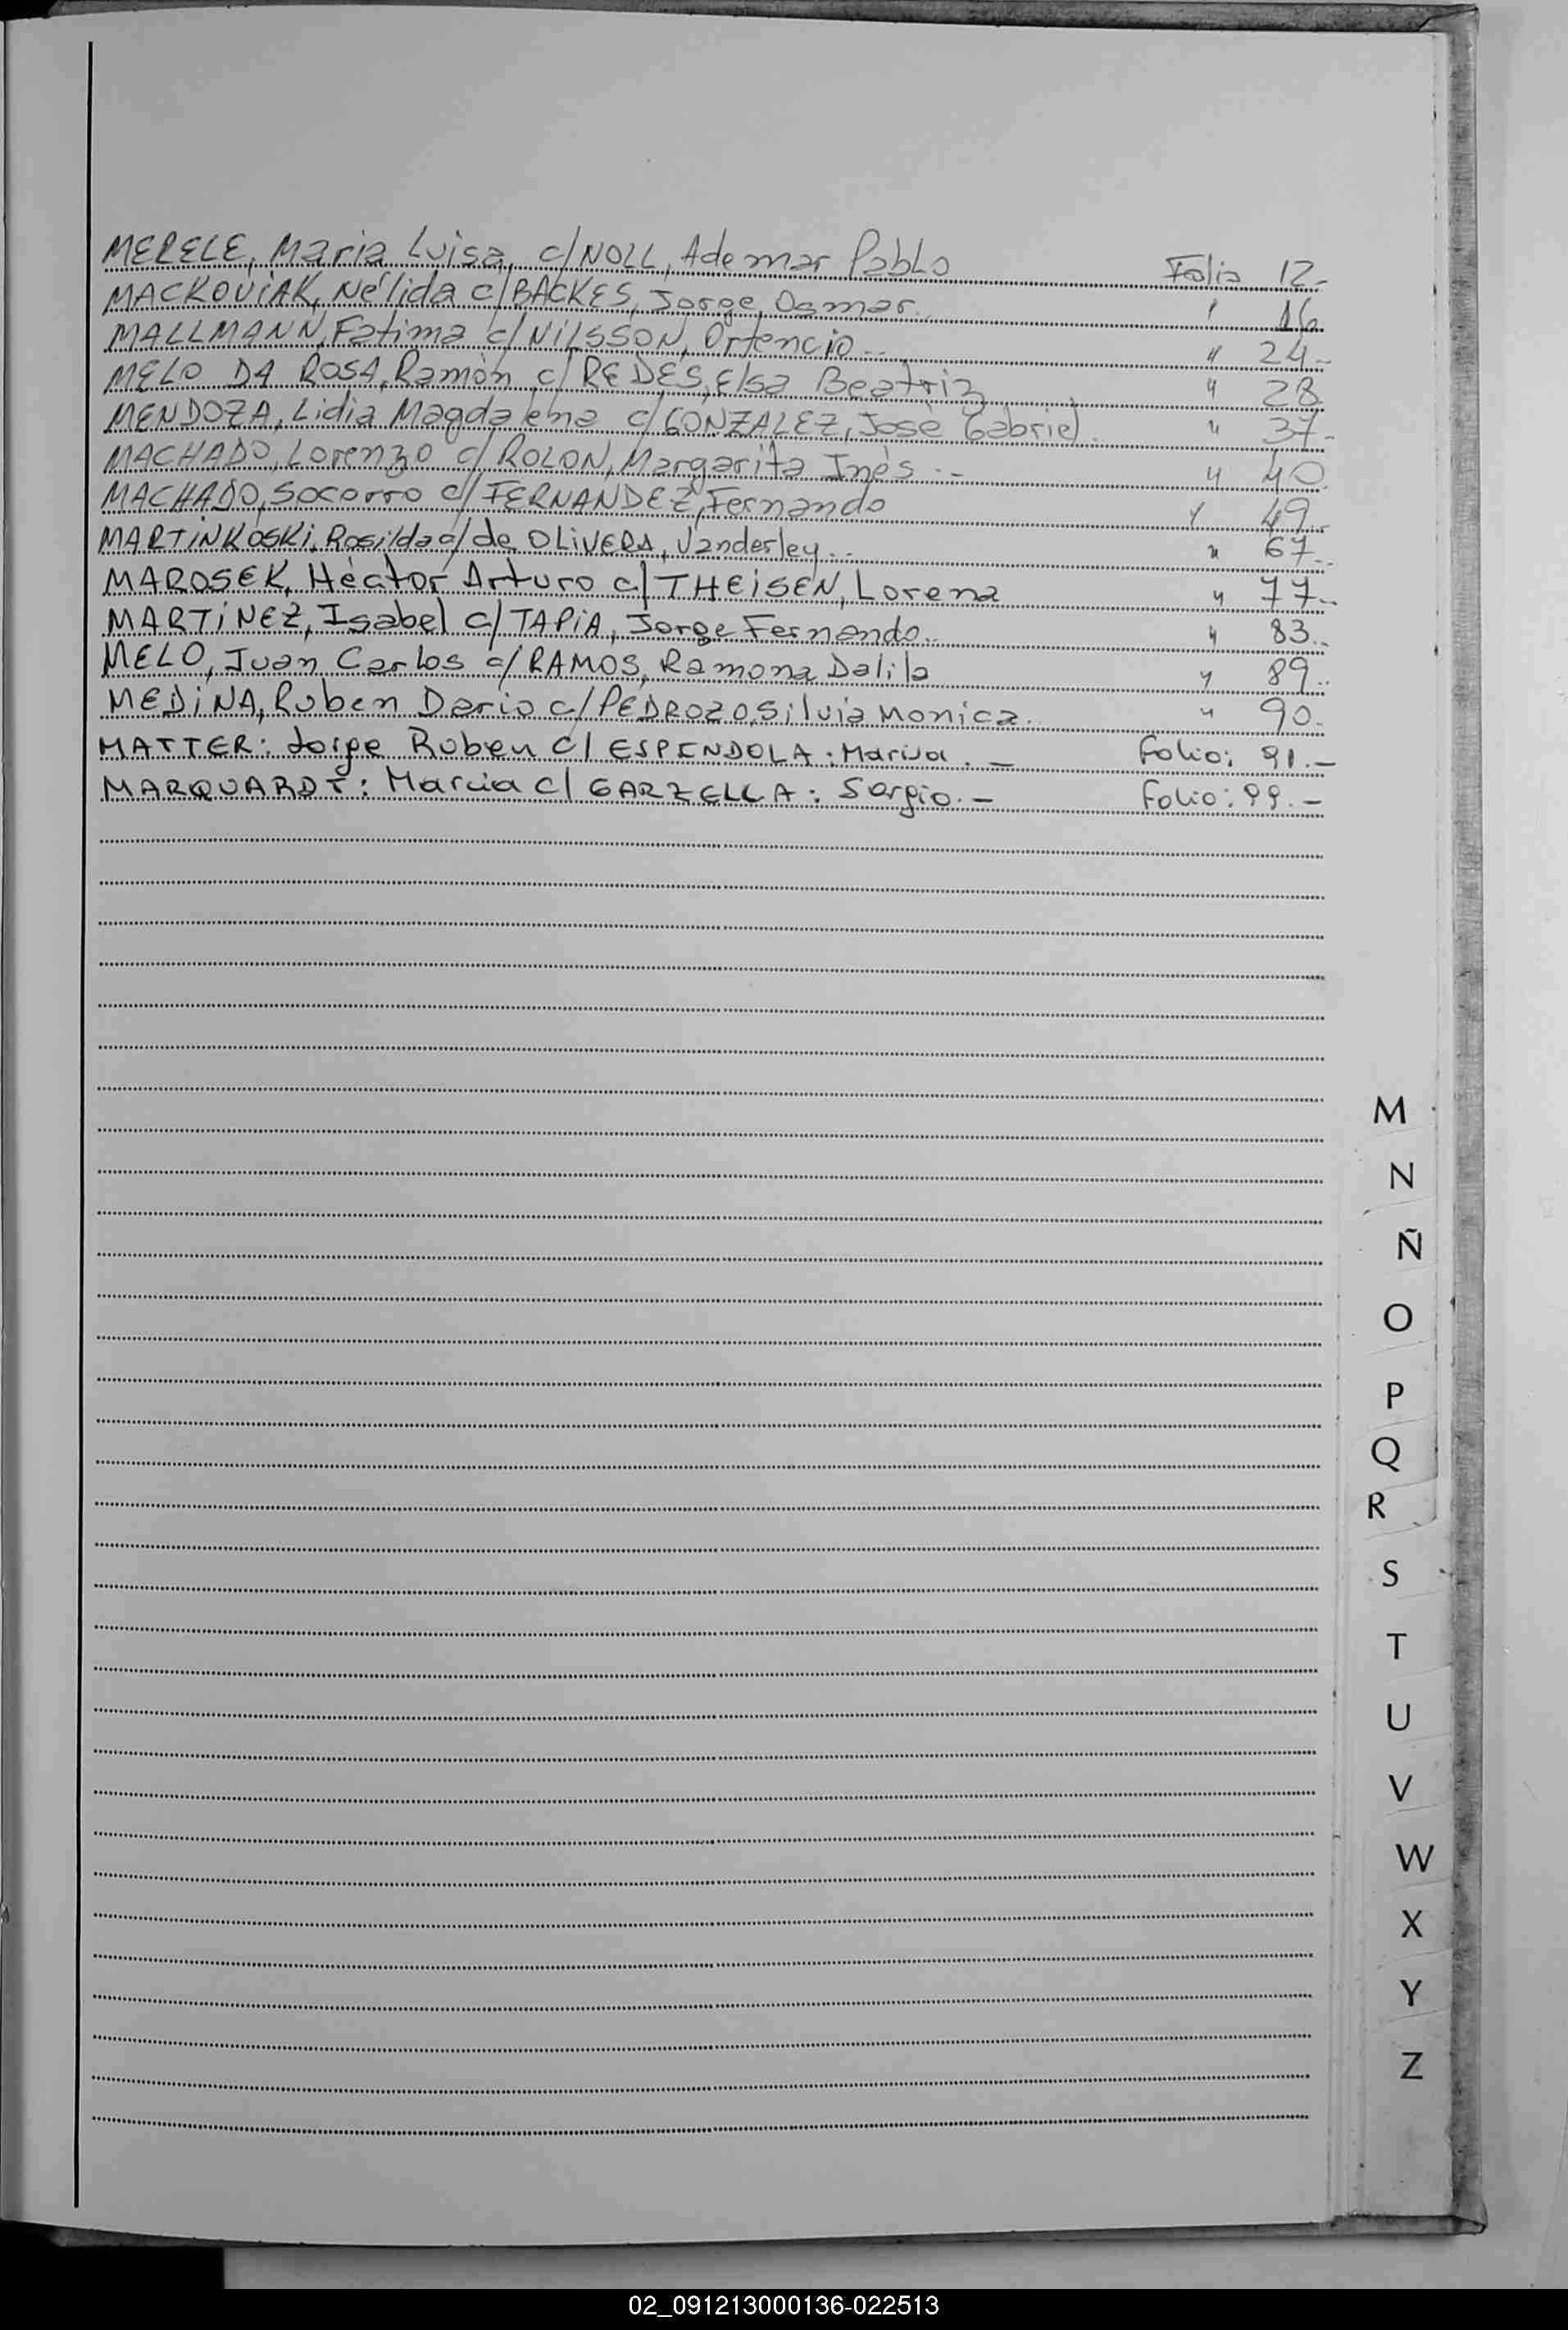 MERELE, Maria Luisa, c/NOLL, Ademar Pablo Folio 12.-
MACKOVIAK, Nélida c/BACKES, Jorge Osmar. " 16
MALLMANN, Fatima c/NILSSON, Ortencio.. " 24.-
MELO DA ROSA, Ramòn c/REDES, Elsa Beatriz " 28
MENDOZA, Lidia Magdalena c/GONZALEZ, Josè Gabriel. " 37.-
MACHADO, Lorenzo c/ROLON, Margarita Inès.- " 40.
MACHADO, Socorro c/FERNANDEZ, Fernando " 49..
MARTiNKOSKi, Rosilda c/de OLiVERA, Vanderley.. " 67..
MAROSEK, Hèctor Arturo c/THEiSEN, Lorena " 77..
MARTiNEZ, Isabel c/TAPiA, Jorge Fernando.. " 83..
MELO, Juan Carlos c/RAMOS, Ramona Dalila " 89..
MEDiNA, Ruben Dario c/PEDROZO, Silvia Monica. " 90.
MATTER: Jorge Ruben c/ ESPINDOLA: Marisa. - Folio: 91.-
MARQUARDT: Marcia c/ GARZELLA: Sergio.- Folio: 99.-
M
N
Ñ
O
P
Q
R
S
T
U
V
W
X
Y
Z
02_091213000136-022513